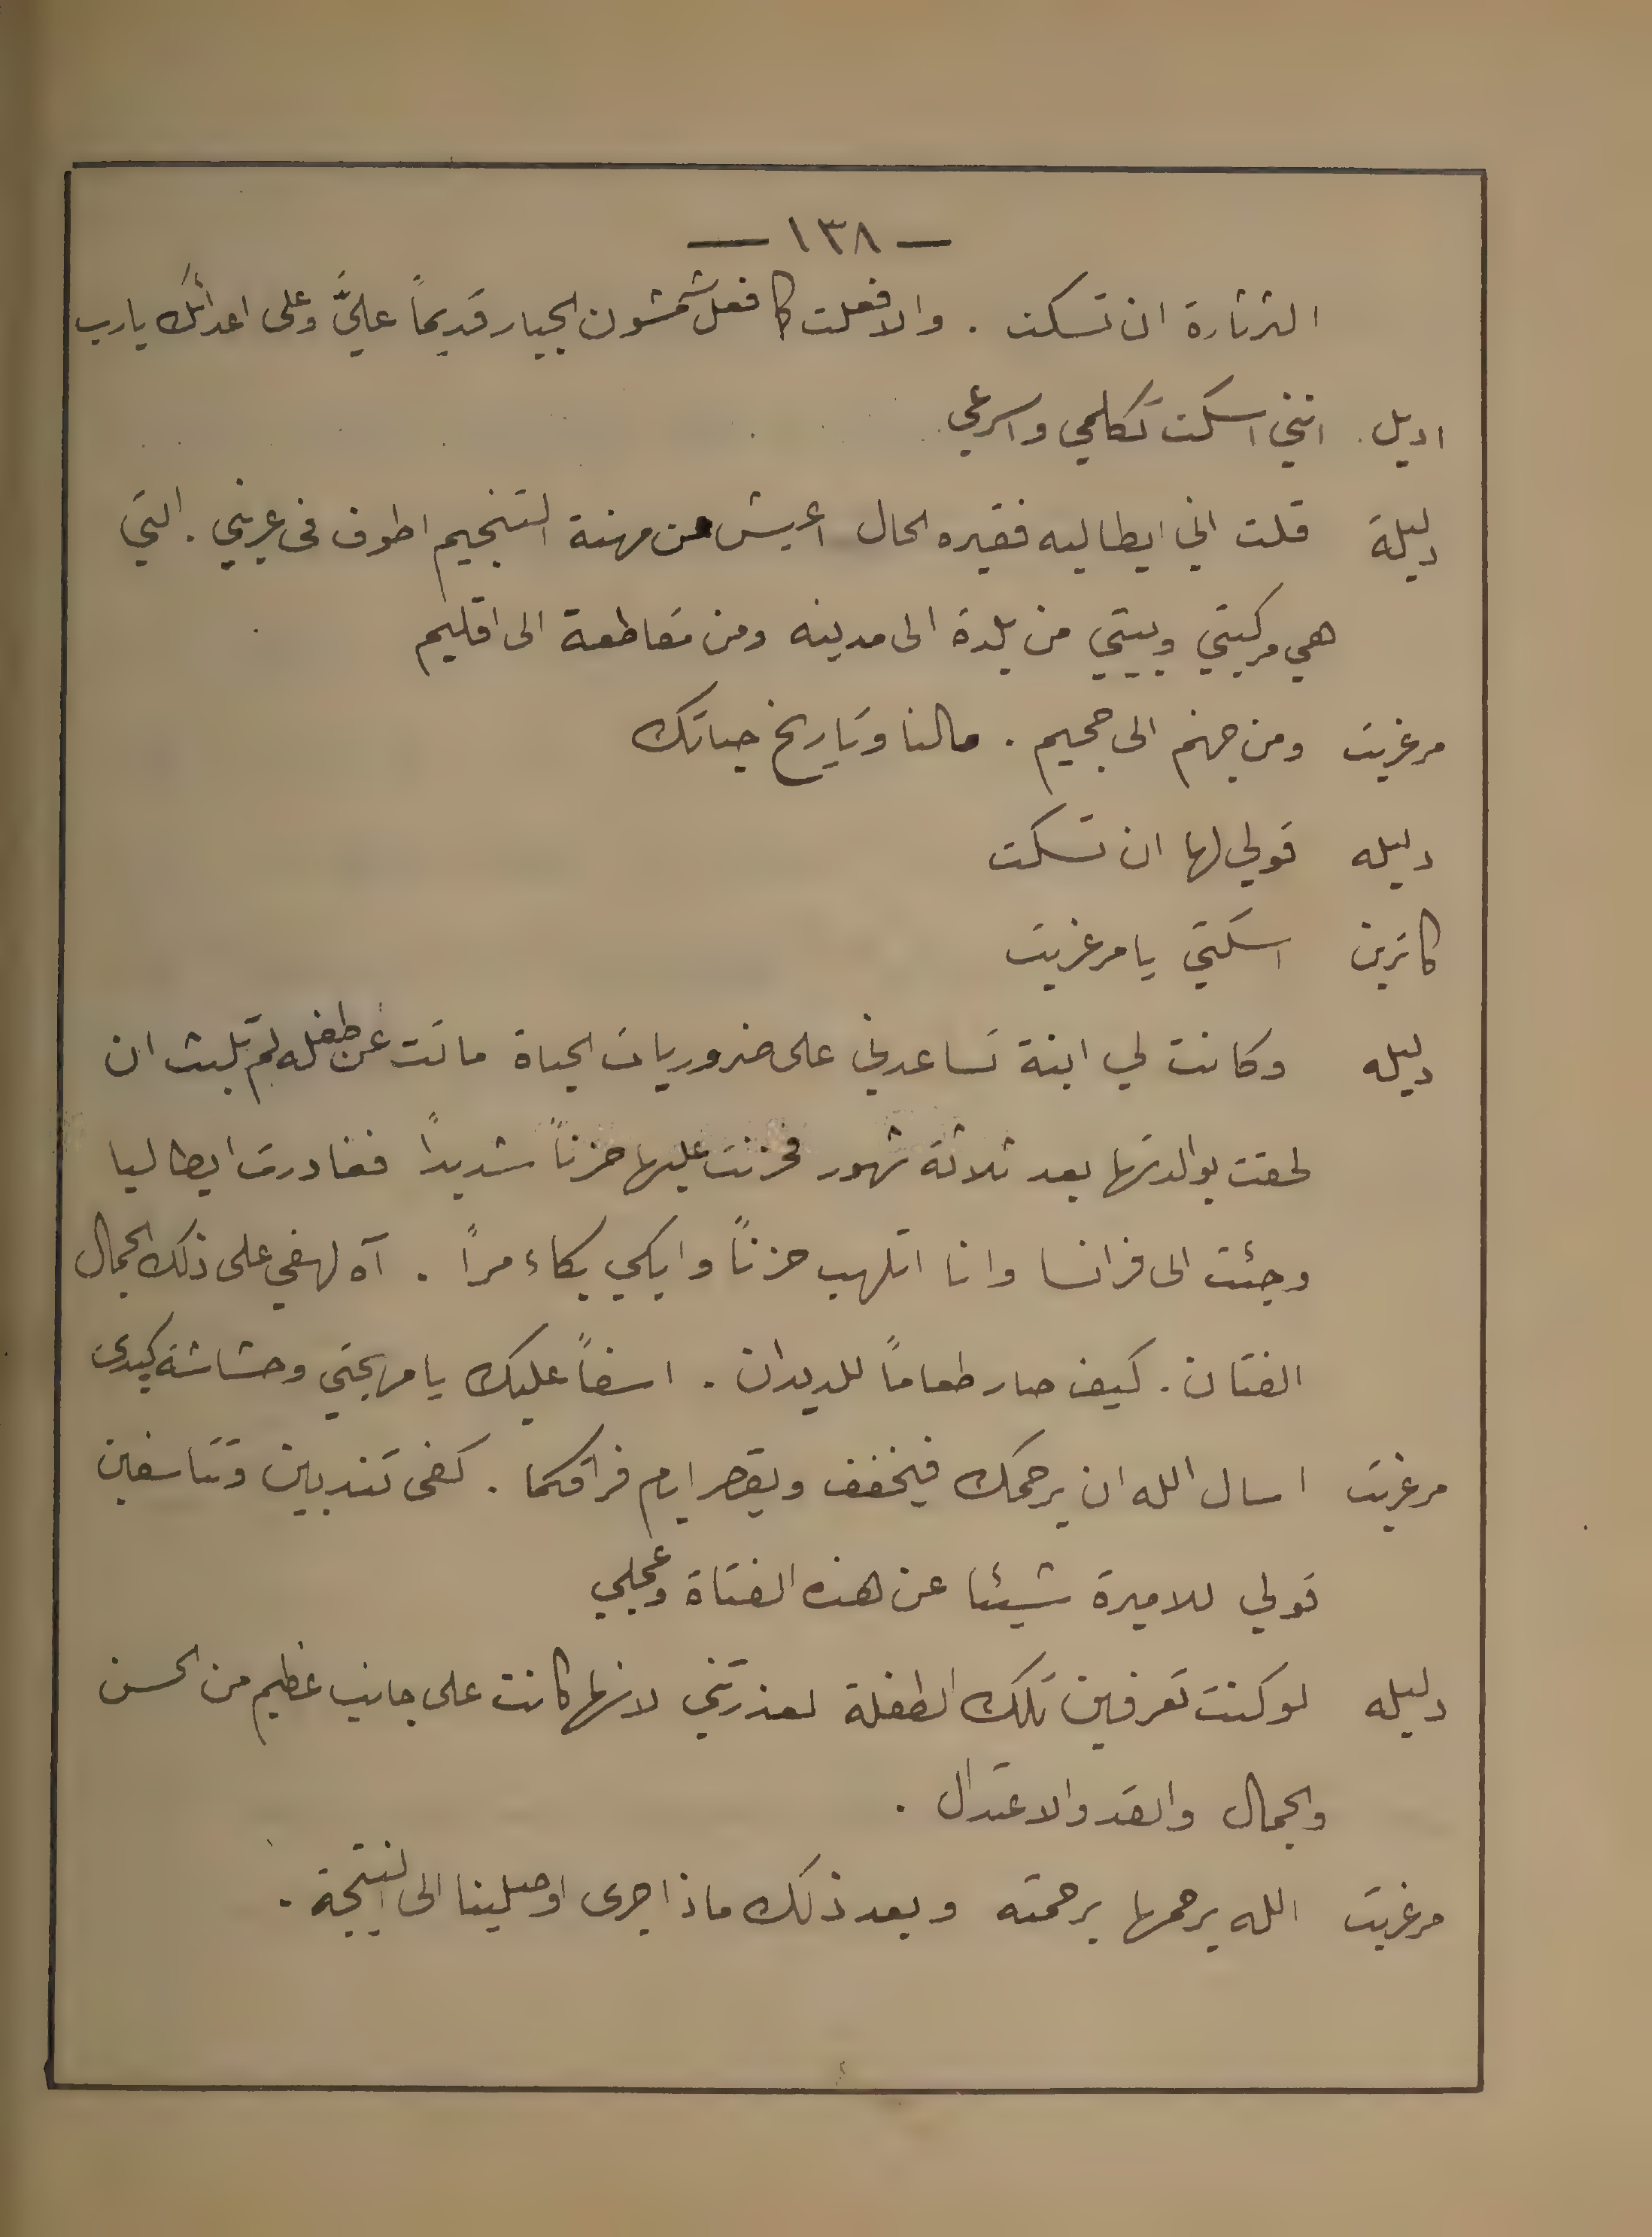 — ١٣٨ —
الثرثارة ان تسكت . والا فعلت كما فعل شمشون الجبار قديماً عليَّ وعلى اعدائك يارب
اديل . انني اسكت تكلمي واسرعي
دليلة قلت اني ايطاليه فقيره الحال اعيش من مهنة التنجيم اطوف فى عربتي . التي
هي مركبتي وبيتي من بلدة الى مدينه ومن مقاطعة الى اقليم
مرغريت ومن جهنم الى جحيم . مالنا وتاريخ حياتك
دليله قولي لها ان تسكت
كاترين اسكتي يا مرغريت
دليله وكانت لي ابنة تساعدني على ضروريات الحياة ماتت عن طفله لم تلبث ان
لحقت بوالدتها بعد ثلاثة شهور فحزنت عليها حزناً شديداً فغادرت ايطاليا
وجئت الى فرانسا وانا اتلهب حزناً وابكي بكاء مراً . آه لهفي على ذلك الجمال
الفتان . كيف صار طعاماً للديدان . اسفاً عليك يا مهجتي وحشاشة كبدى
مرغريت اسال الله ان يرحمك فيخفف ويقصر ايام فراقكما . كفى تندبين وتتاسفين
قولي للاميرة شيئا عن هذه الفتاة وعجلي
دليله لو كنت تعرفين تلك الطفلة لعذرتني لانها كانت على جانب عظيم من الحسن
والجمال والقد والاعتدال .
مرغريت الله يرحمها برحمته وبعد ذلك ماذا جرى اوصلينا الى النتيجة .